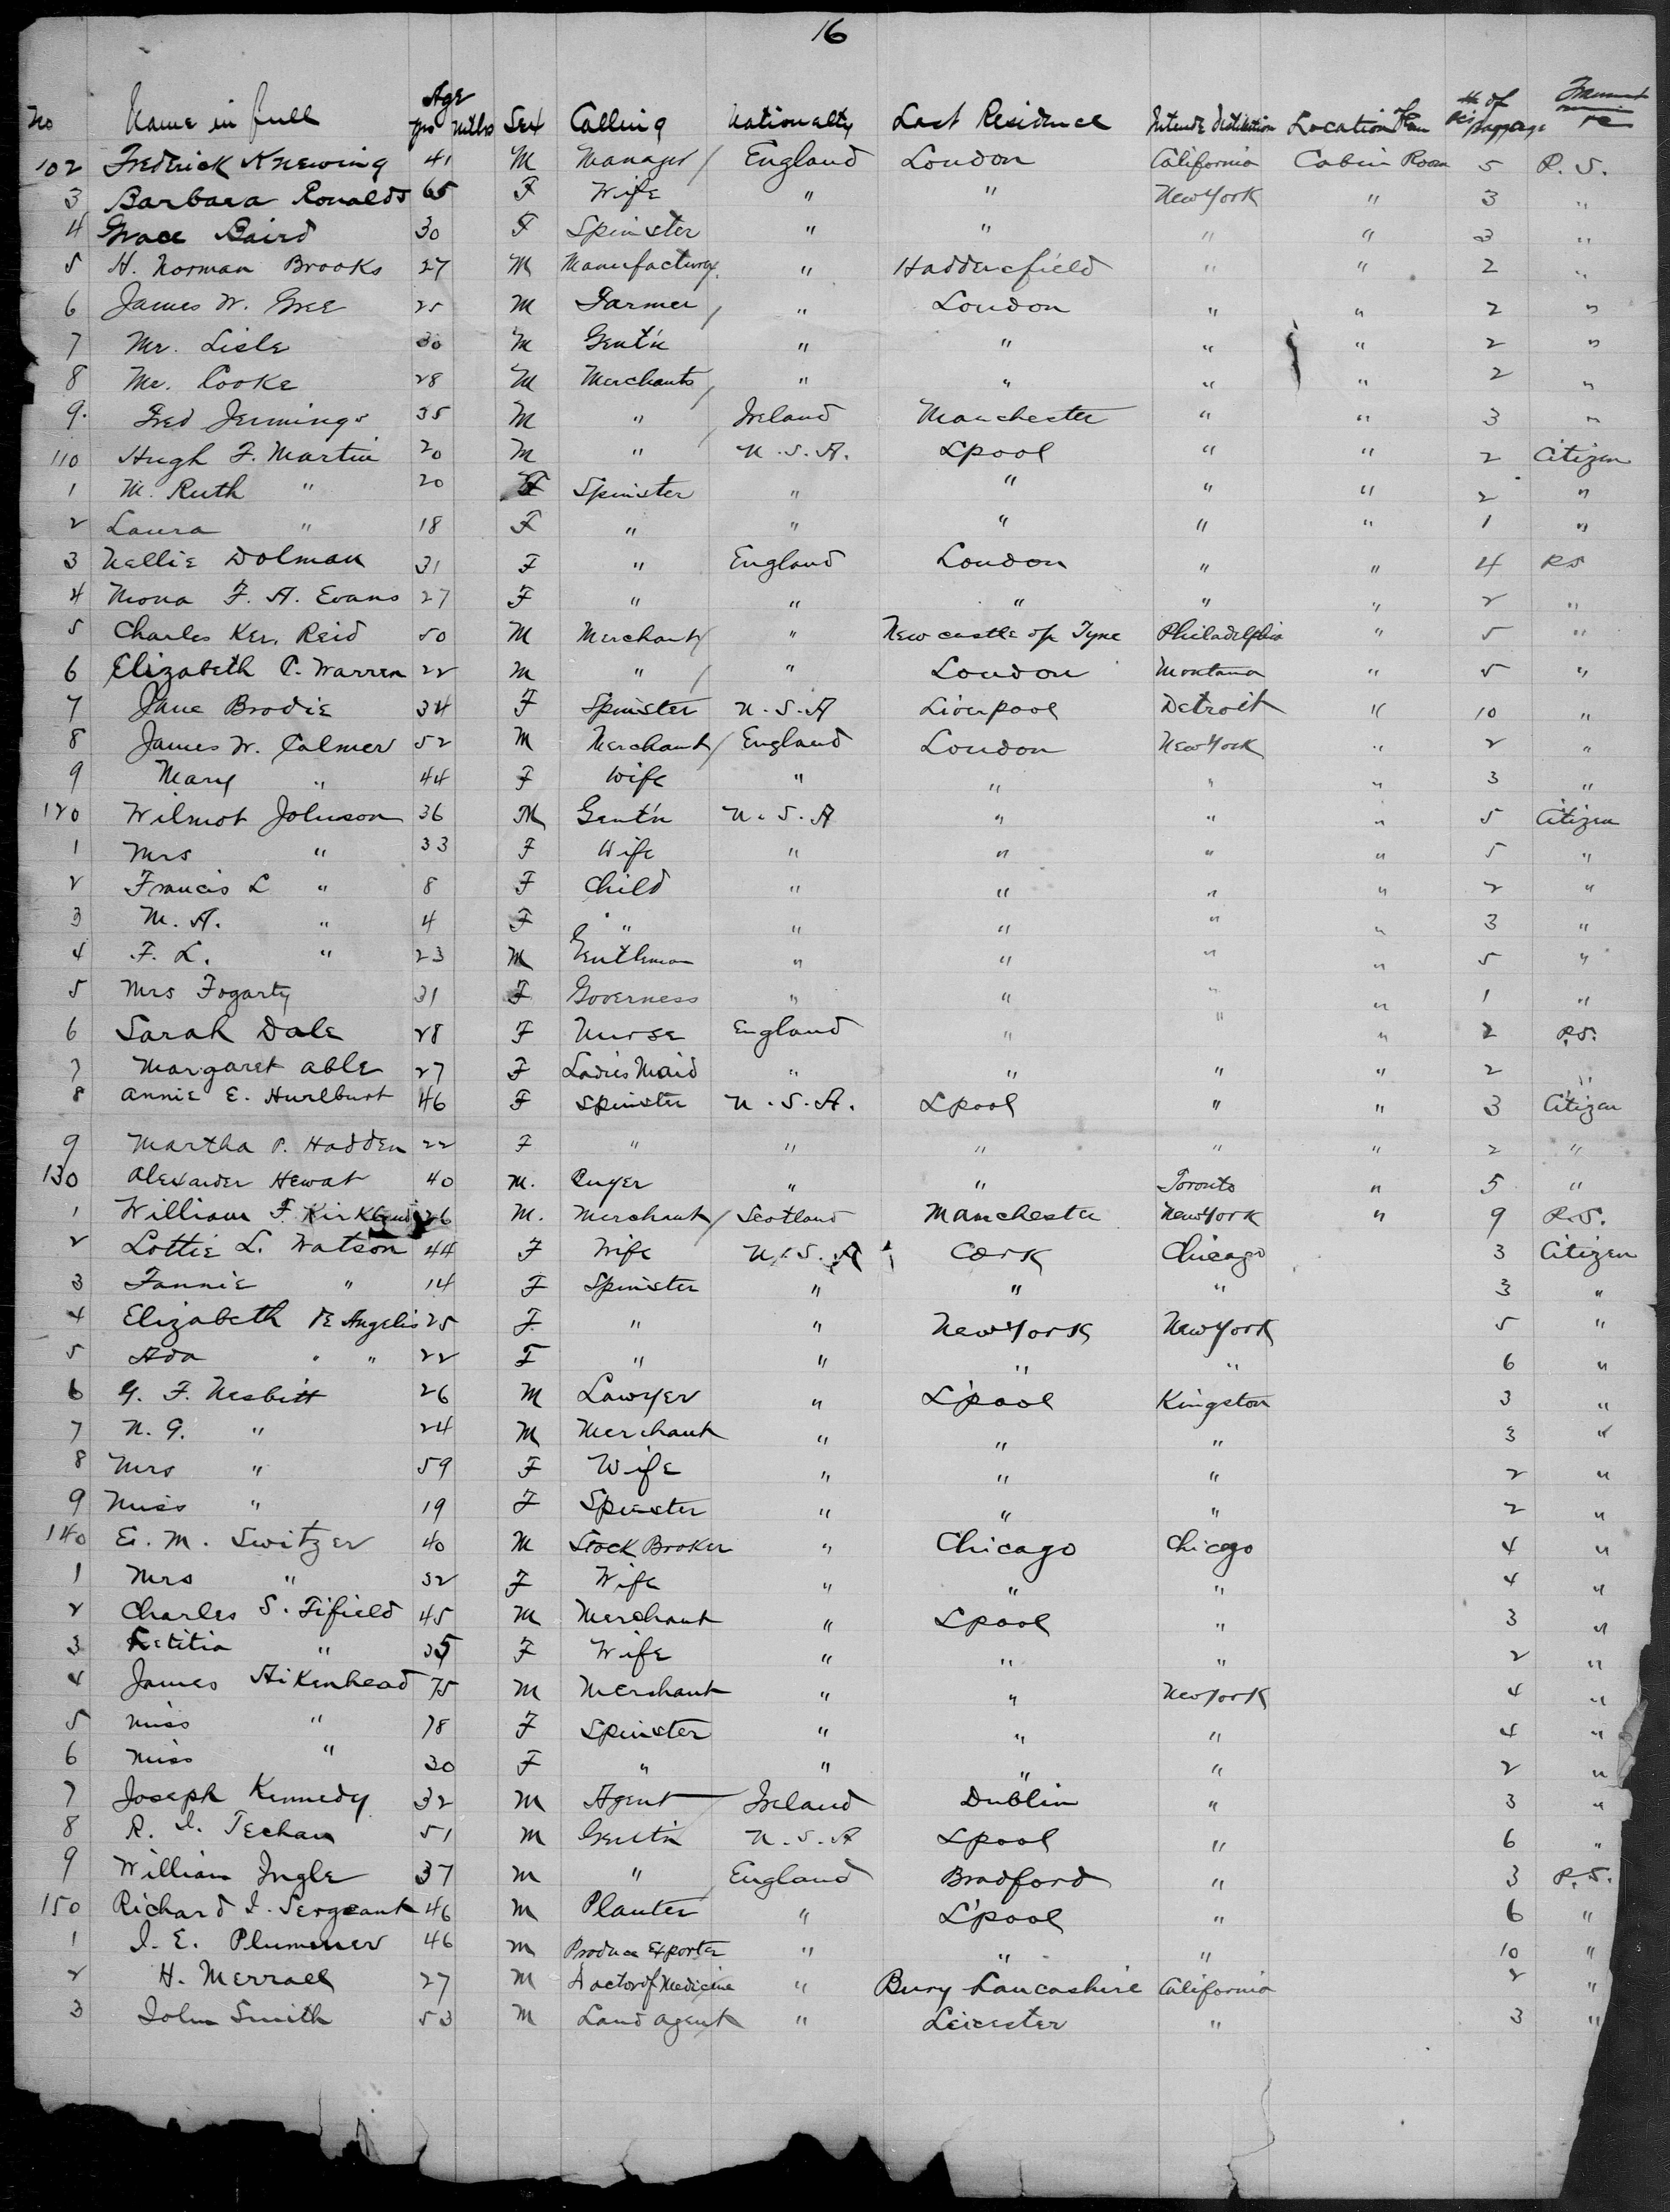 16
No Name in full Age yrs mths Sex Calling Nationality Last Residence Location # of
102 Fredrick Knewing 41 M Manager / England London California Cabin Room 5 R.S.
3 Barbara Ronalds 65 F Wife " " New York " 3 "
4 Grace Baird 30 F Spinster " " " " 3 "
5 H. Norman Brooks 27 M Manufacturer " Haddersfield " " 2 "
6 James W. Gree 25 M Farmer / " London " " 2 "
7 Mr. Lisle 30 M Gent'n " " " " 2 "
8 Mr. Cooke 28 M Merchants / " " " " 2 "
9. Fred Jennings 35 M " / Ireland Manchester " " 3 "
110 Hugh F. Martin 20 M " U.S.A. Lpool " " 2 Citizen
1 M. Ruth " 20 F Spinster " " " " 2 "
2 Laura " 18 F " " " " " 1 "
3 Nellie Dolman 31 F " England London " " 4 RS
4 Mona F. A. Evans 27 F " " " " " 2 "
5 Charles Ker. Reid 50 M Merchant / " New castle op Tyne Philadelphia " 5 "
6 Elizabeth P. Warren 22 M " / " London Montana " 5 "
7 Jane Brodie 34 F Spinster U.S.A Liverpool Detroit " 10 "
8 James W. Calmer 52 M Merchant / England London New York " 2 "
9 Mary " 44 F Wife " " " " 3 "
120 Wilmot Johnson 36 M Gent'n U.S.A " " " 5 Citizen
1 Mrs " 33 F Wife " " " " 5 "
2 Francis L " 8 F Child " " " " 2 "
3 M. A. " 4 F " " " " " 3 "
4 F. L. " 23 M Gentleman " " " " 5 "
5 Mrs Fogarty 31 F Governess " " " " 1 "
6 Sarah Dale 28 F Nurse England " " " 2 R.S.
7 Margaret able 27 F Ladies Maid " " " " 2 "
8 Annie E. Hurlburt 46 F Spinster U.S.A. Lpool " " 3 Citizen
9 Martha P. Hadden 22 F " " " " " 2 "
130 Alexander Hewat 40 M. Buyer " " Toronto " 5 "
1 William F. Kirkland 26 M. Merchant / Scotland Manchester New York " 9 R.S.
2 Lottie L. Watson 44 F Wife U.S.A Cork Chicago 3 Citizen
3 Fannie " 14 F Spinster " " " 3 "
4 Elizabeth De Angelis 25 F " " New York New York 5 "
5 Ada " " 22 F " " " " 6 "
6 G. F. Nesbitt 26 M Lawyer " L'pool Kingston 3 "
7 N. G. " 24 M Merchant " " " 3 "
8 Mrs " 59 F Wife " " " 2 "
9 Miss " 19 F Spinster " " " 2 "
140 E. M. Switzer 40 M Stock Broker " Chicago Chicago 4 "
1 Mrs " 32 F Wife " " " 4 "
2 Charles S. Fifield 45 M Merchant " Lpool " 3 "
3 Letitia " 35 F Wife " " " 2 "
4 James Aikenhead 75 M Merchant " " New York 4 "
5 Miss " 78 F Spinster " " " 4 "
6 Miss " 30 F " " " " 2 "
7 Joseph Kennedy 32 M Agent / Ireland Dublin " 3 "
8 R. I. Techan 51 M Gent'n U.S.A Lpool " 6 "
9 William Ingle 37 M " / England Bradford " 3 R.S.
150 Richard I. Sergeant 46 M Planter " L'pool " 6 "
1 I. E. Plummer 46 M Produce Exporter " " " 10 "
2 H. Merrall 27 M Doctor of Medicine " Bury Lancashire California 2 "
3 John Smith 53 M Land agent " Leicester " 3 "